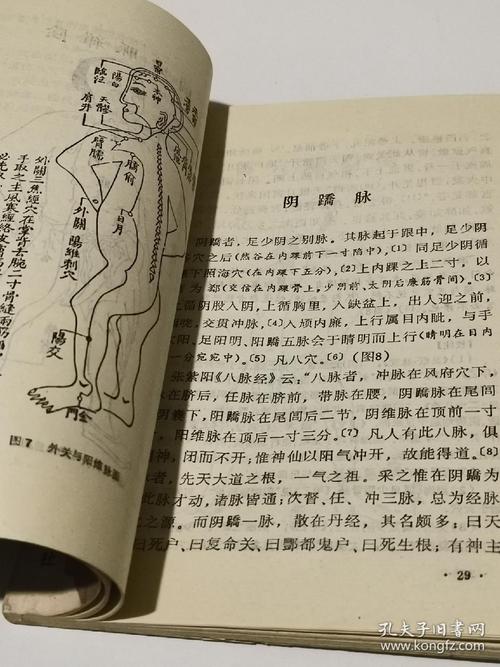 陽白
臨泣
本神
天髎
肩井
臂臑
臑俞
日月
外關
陽維刺穴
陽交
金門
外關三焦經穴在掌背去腕二寸骨縫兩筋
手取之主風寒經絡皮膚
图7 外关与阳维脉
阴蹻脉
阴蹻者，足少阴之别脉。其脉起于跟中，足少阴
穴之后(然谷在内踝前下一寸陷中)，〔1〕同足少阴循
下照海穴(在内踝下五分)，〔2〕上内踝之上二寸，以
为郄(交信在内踝骨上，少阴前、太阴后廉筋骨间)。〔3〕
循阴股入阴，上循胸里，入缺盆上，出人迎之前，
咙，交贯冲脉，〔4〕入頄内廉，上行属目内眦，与手
太阳、足阳明、阳蹻五脉会于睛明而上行(睛明在目内
一分宛宛中)。〔5〕 凡八穴。〔6〕 (图8)
张紫阳《八脉经》云：“八脉者，冲脉在风府穴下，
脉在脐后，任脉在脐前，带脉在腰，阴蹻脉在尾闾
囊下，阳蹻脉在尾闾后二节，阴维脉在顶前一寸
，阳维脉在顶后一寸三分。〔7〕 凡人有此八脉，俱
神，闭而不开；惟神仙以阳气冲开，故能得道。〔8〕
者，先天大道之根，一气之祖。采之惟在阴蹻为
此脉才动，诸脉皆通；次督、任、冲三脉，总为经脉
之源。而阴蹻一脉，散在丹经，其名颇多；曰天
曰死户、曰复命关、曰酆都鬼户、曰死生根；有神主
· 29 ·
孔夫子旧书网
www.kongfz.com